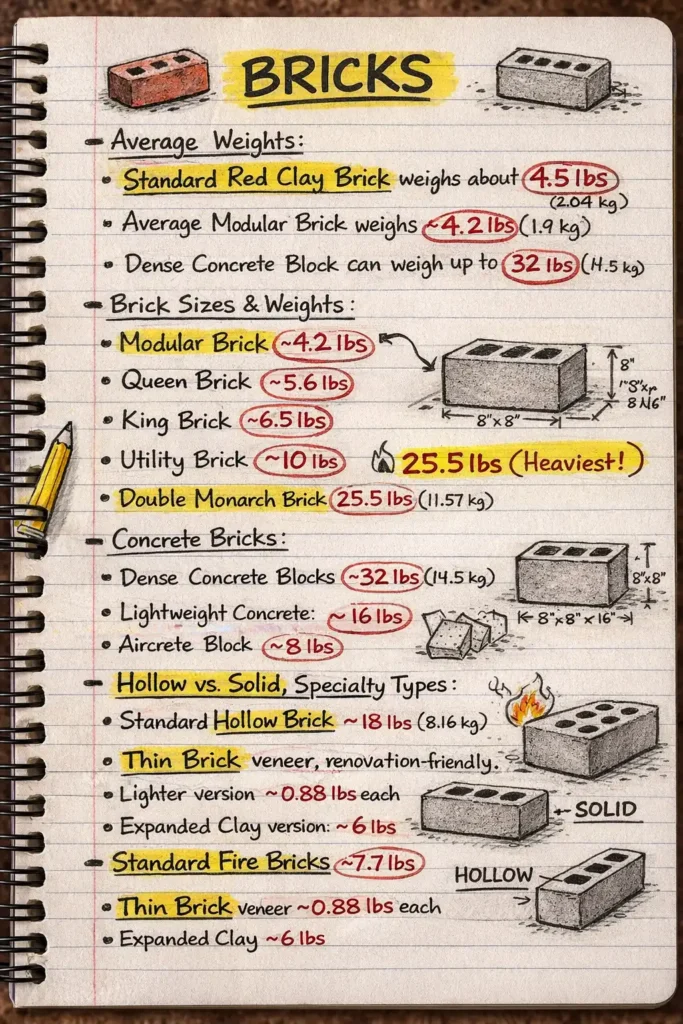 BRICKS
– Average Weights:
• Standard Red Clay Brick weighs about 4.5 lbs
(2.04 kg)
• Average Modular Brick weighs ~4.2 lbs (1.9 kg)
• Dense Concrete Block can weigh up to 32 lbs (14.5 kg)
– Brick Sizes & Weights:
• Modular Brick ~4.2 lbs
8"
• Queen Brick ~5.6 lbs
• King Brick ~6.5 lbs
8"x8"
• Utility Brick ~10 lbs
25.5 lbs (Heaviest!)
• Double Monarch Brick 25.5 lbs (11.57 kg)
– Concrete Bricks:
• Dense Concrete Blocks ~32 lbs (14.5 kg)
8"x8"
• Lightweight Concrete: ~16 lbs
8"x8"x16"
• Aircrete Block ~8 lbs
– Hollow vs. Solid, Specialty Types:
• Standard Hollow Brick ~18 lbs (8.16 kg)
• Thin Brick veneer, renovation-friendly.
• Lighter version ~0.88 lbs each
SOLID
• Expanded Clay version: ~6 lbs
– Standard Fire Bricks ~7.7 lbs
HOLLOW
• Thin Brick veneer ~0.88 lbs each
• Expanded Clay ~6 lbs